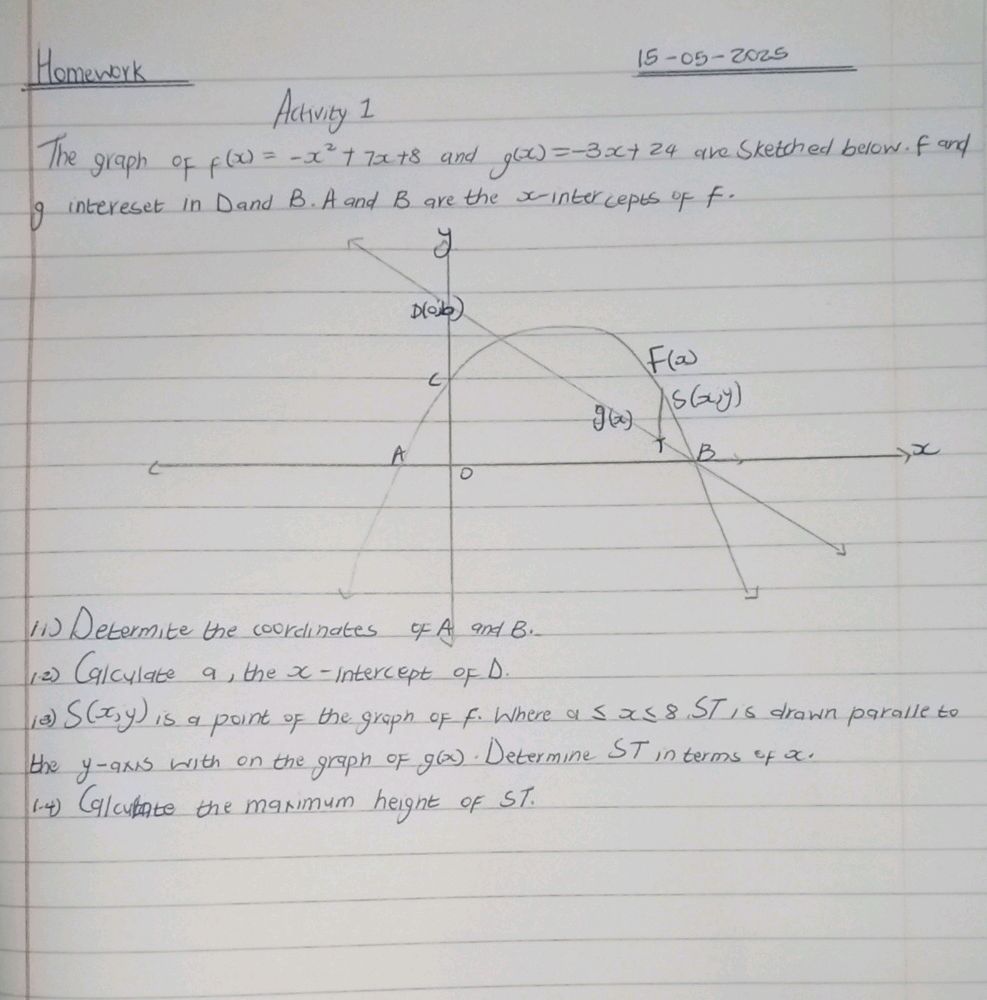 Homework
15-05-2025
Activity 1
The graph of f(x) = -x² + 7x+8 and g(x) =-3x+ 24 are Sketched below. f and
g intereset in D and B. A and B are the x-intercepts of f.
y
D(a;b)
F(x)
C
S(x;y)
g(x)
T
A
B
x
O
1.1) Determite the coordinates of A and B.
1.2) Calculate a, the x-intercept of D.
1.3) S(x;y) is a point of the graph of f. Where a ≤ x ≤ 8. ST is drawn paralle to
the y-axis with on the graph of g(x). Determine ST in terms of x.
1.4) Calculate the maximum height of ST.